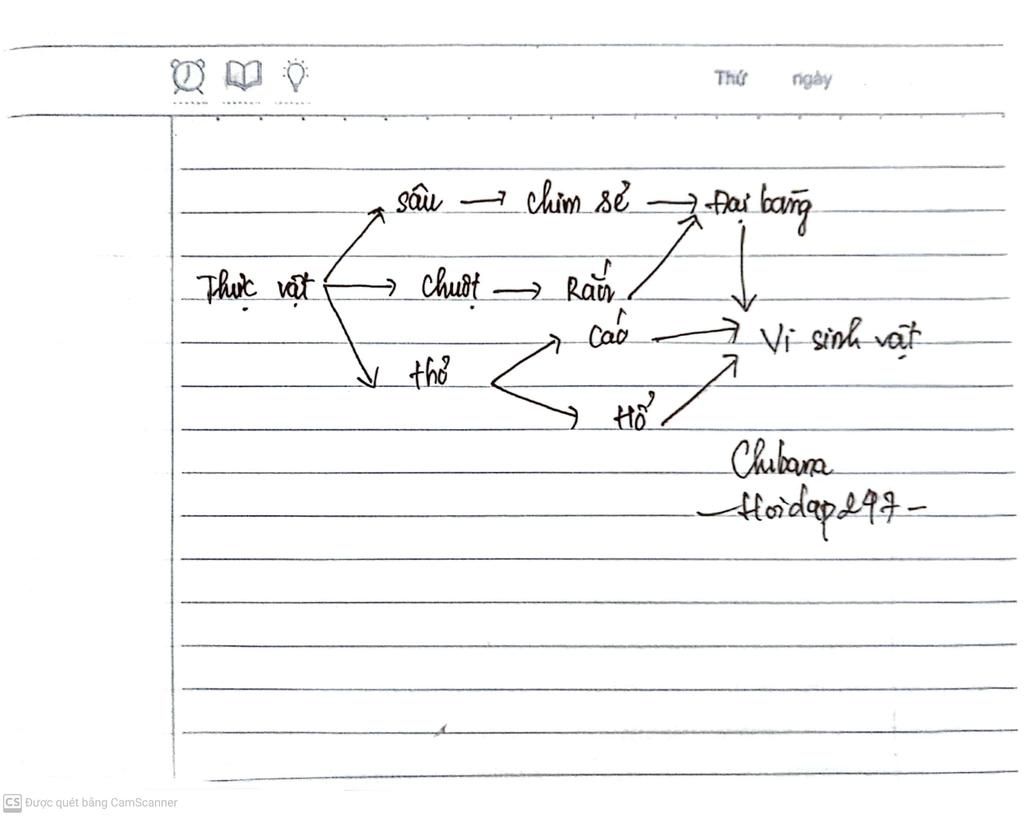 Thứ ngày
sâu → chim sẻ → Đại bàng
Thực vật → chuột → Rắn
Cáo → Vi sinh vật
thỏ
Hổ
Chubana
- Hoidap247 -
CS Được quét bằng CamScanner